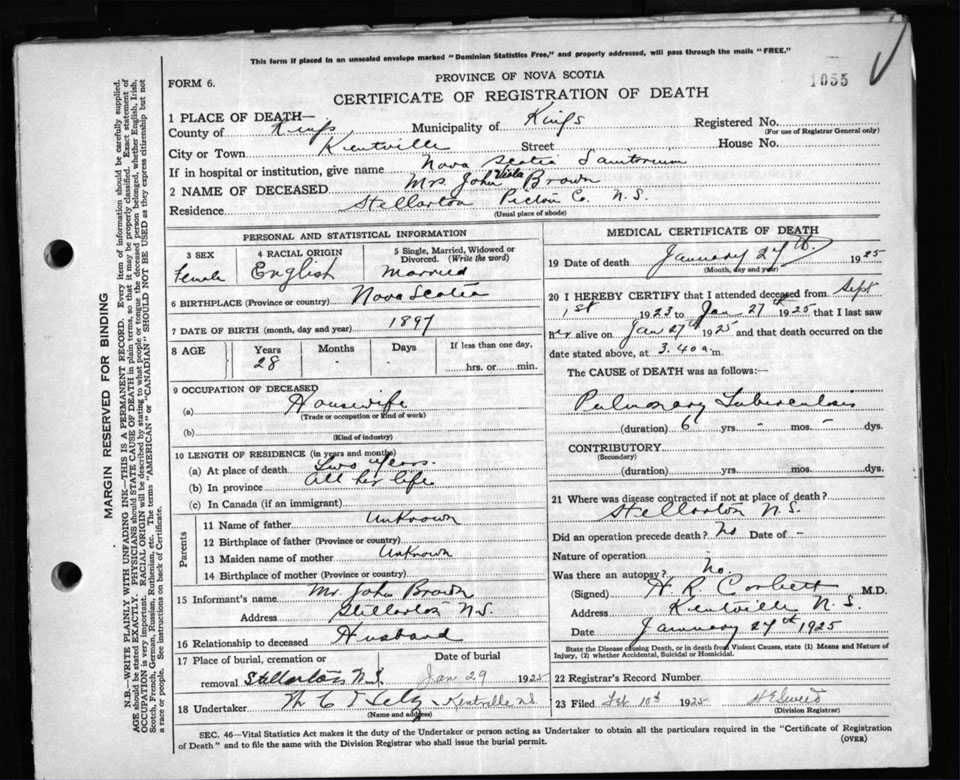 This form if placed in an unsealed envelope marked "Dominion Statistics Free," and properly addressed, will pass through the mails "FREE."
FORM 6.
PROVINCE OF NOVA SCOTIA
1055
CERTIFICATE OF REGISTRATION OF DEATH
1 PLACE OF DEATH—
County of Kings Municipality of Kings Registered No.
(For use of Registrar General only)
City or Town Kentville Street House No.
If in hospital or institution, give name Nova Scotia Sanitorium
2 NAME OF DECEASED Mrs John Viola Brown
Residence Stellarton Pictou Co. N.S.
(Usual place of abode)
PERSONAL AND STATISTICAL INFORMATION
3 SEX 4 RACIAL ORIGIN 5 Single, Married, Widowed or Divorced. (Write the word)
Female English Married
6 BIRTHPLACE (Province or country) Nova Scotia
7 DATE OF BIRTH (month, day and year) 1897
8 AGE Years Months Days If less than one day,
28 - - hrs. or min.
9 OCCUPATION OF DECEASED
(a) Housewife
(Trade or occupation or kind of work)
(b)
(Kind of industry)
10 LENGTH OF RESIDENCE (in years and months)
(a) At place of death Two years.
(b) In province All her life
(c) In Canada (if an immigrant)
Parents
11 Name of father Unknown
12 Birthplace of father (Province or country)
13 Maiden name of mother Unknown
14 Birthplace of mother (Province or country)
15 Informant's name Mr John Brown
Address Stellarton N.S.
16 Relationship to deceased Husband
17 Place of burial, cremation or Date of burial
removal Stellarton N.S. Jan 29 1925
18 Undertaker Kentville N.S.
(Name and address)
MEDICAL CERTIFICATE OF DEATH
19 Date of death January 27th. 1925
(Month, day and year)
20 I HEREBY CERTIFY that I attended deceased from Sept
1st 1923 to Jan 27th 1925 that I last saw
her alive on Jan 27th 1925 and that death occurred on
date stated above, at 3.40 a.m.
The CAUSE of DEATH was as follows:—
Pulmonary Tuberculosis
(duration) 6 yrs. - mos. - dys.
CONTRIBUTORY
(Secondary)
(duration) yrs. mos. dys.
21 Where was disease contracted if not at place of death?
Stellarton N.S.
Did an operation precede death? No Date of -
Nature of operation
Was there an autopsy? No.
(Signed) H R Corbett M.D.
Address Kentville N.S.
Date January 27th 1925
State the Disease causing Death, or in death from Violent Causes, state (1) Means and Nature of
Injury, (2) whether Accidental, Suicidal or Homicidal.
22 Registrar's Record Number
23 Filed Feb 10th 1925
(Division Registrar)
SEC. 46—Vital Statistics Act makes it the duty of the Undertaker or person acting as Undertaker to obtain all the particulars required in the "Certificate of Registration
of Death" and to file the same with the Division Registrar who shall issue the burial permit.
(OVER)
MARGIN RESERVED FOR BINDING
N.B.—WRITE PLAINLY WITH UNFADING INK—THIS IS A PERMANENT RECORD. Every item of information should be carefully supplied.
AGE should be stated EXACTLY. PHYSICIANS should STATE CAUSE OF DEATH in plain terms, so that it may be properly classified. Exact statement of
OCCUPATION is very important. RACIAL ORIGIN will be described by stating to what people or tongue the deceased person belonged, whether English, Irish,
Scotch, French, German, Russian, Ruthenian, etc. The terms "AMERICAN" or "CANADIAN" SHOULD NOT BE USED as they express citizenship but not
a race or people. See instructions on back of Certificate.